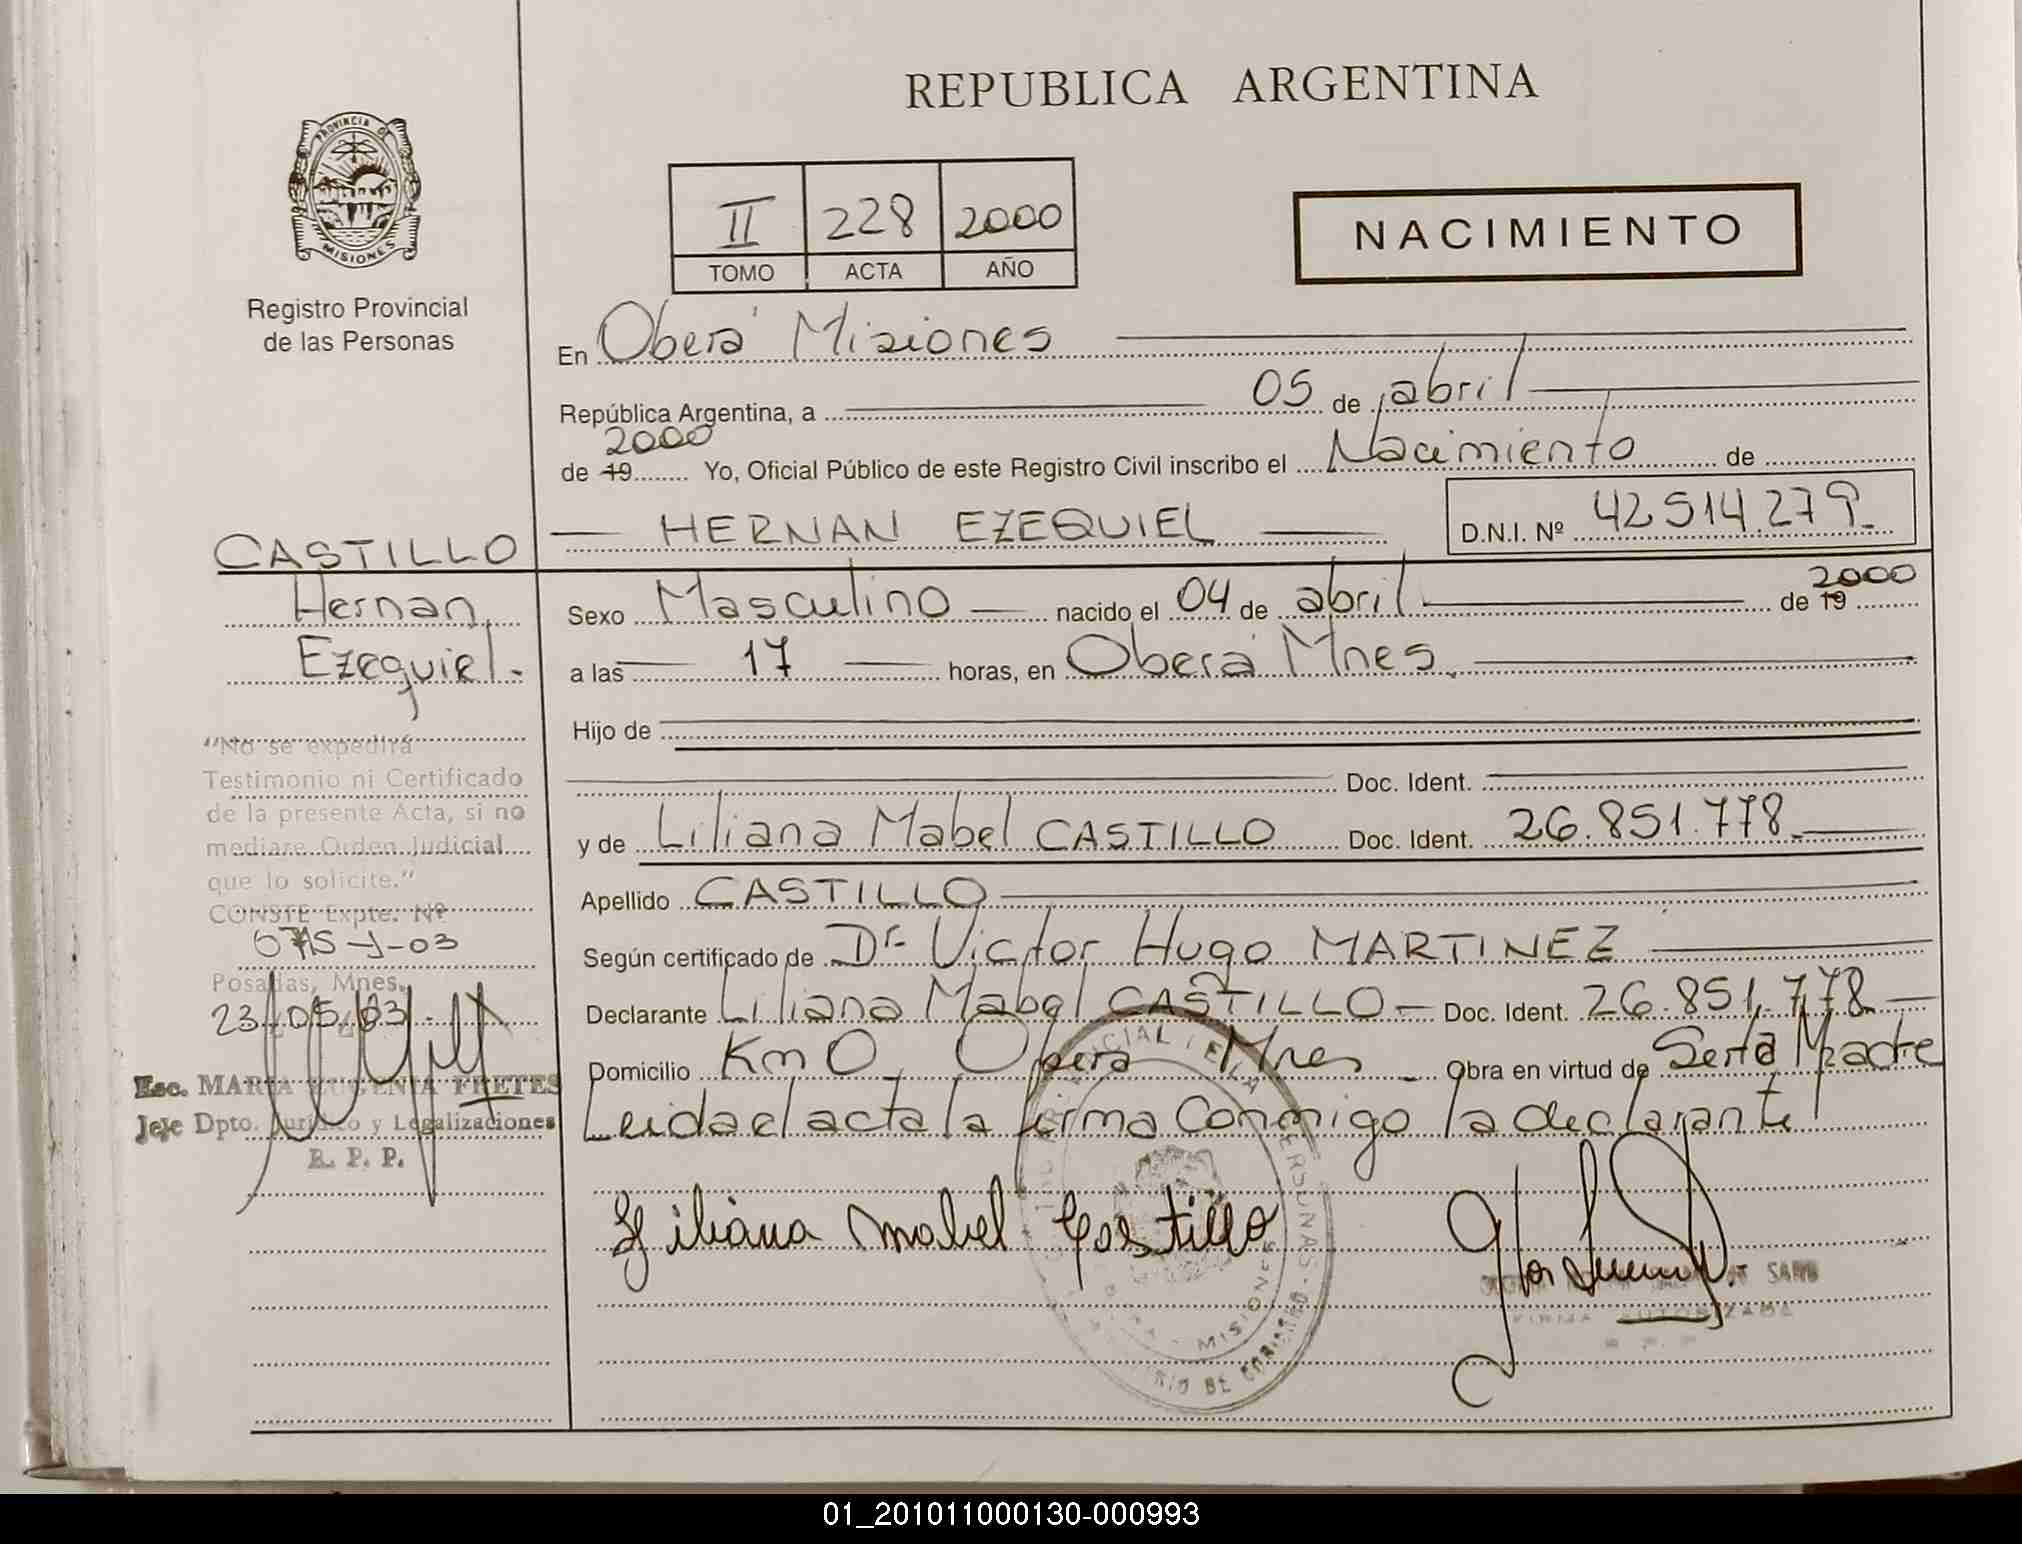 REPUBLICA ARGENTINA
PROVINCIA DE
MISIONES
Registro Provincial
de las Personas
II 228 2000
TOMO ACTA AÑO
NACIMIENTO
En Oberá Misiones
República Argentina, a 05 de abril
2000
de 19 Yo, Oficial Público de este Registro Civil inscribo el Nacimiento de
HERNAN EZEQUIEL D.N.I. Nº 42514.279.
CASTILLO
Hernan
Ezequiel.
Sexo Masculino nacido el 04 de abril de 19 2000
a las 17 horas, en Oberá Mnes.
Hijo de
Doc. Ident.
y de Liliana Mabel CASTILLO Doc. Ident. 26.851.778.
Apellido CASTILLO
Según certificado de Dr. Victor Hugo MARTINEZ
Declarante Liliana Mabel CASTILLO Doc. Ident. 26.851.778
Domicilio Km 0 Oberá Mnes Obra en virtud de Madre
Leida el acta la firma conmigo la declarante
"No se expedirá
Testimonio ni Certificado
de la presente Acta, si no
mediare Orden Judicial
que lo solicite."
CONSTE Expte. Nº
-J-03
Posadas, Mnes.
23 05 03
Esc. MARIA EUGENIA FRETES
Jefe Dpto. Jurídico y Legalizaciones
R. P. P.
Liliana Mabel Castillo
MISIONES
FIRMA AUTORIZADA
01_201011000130-000993